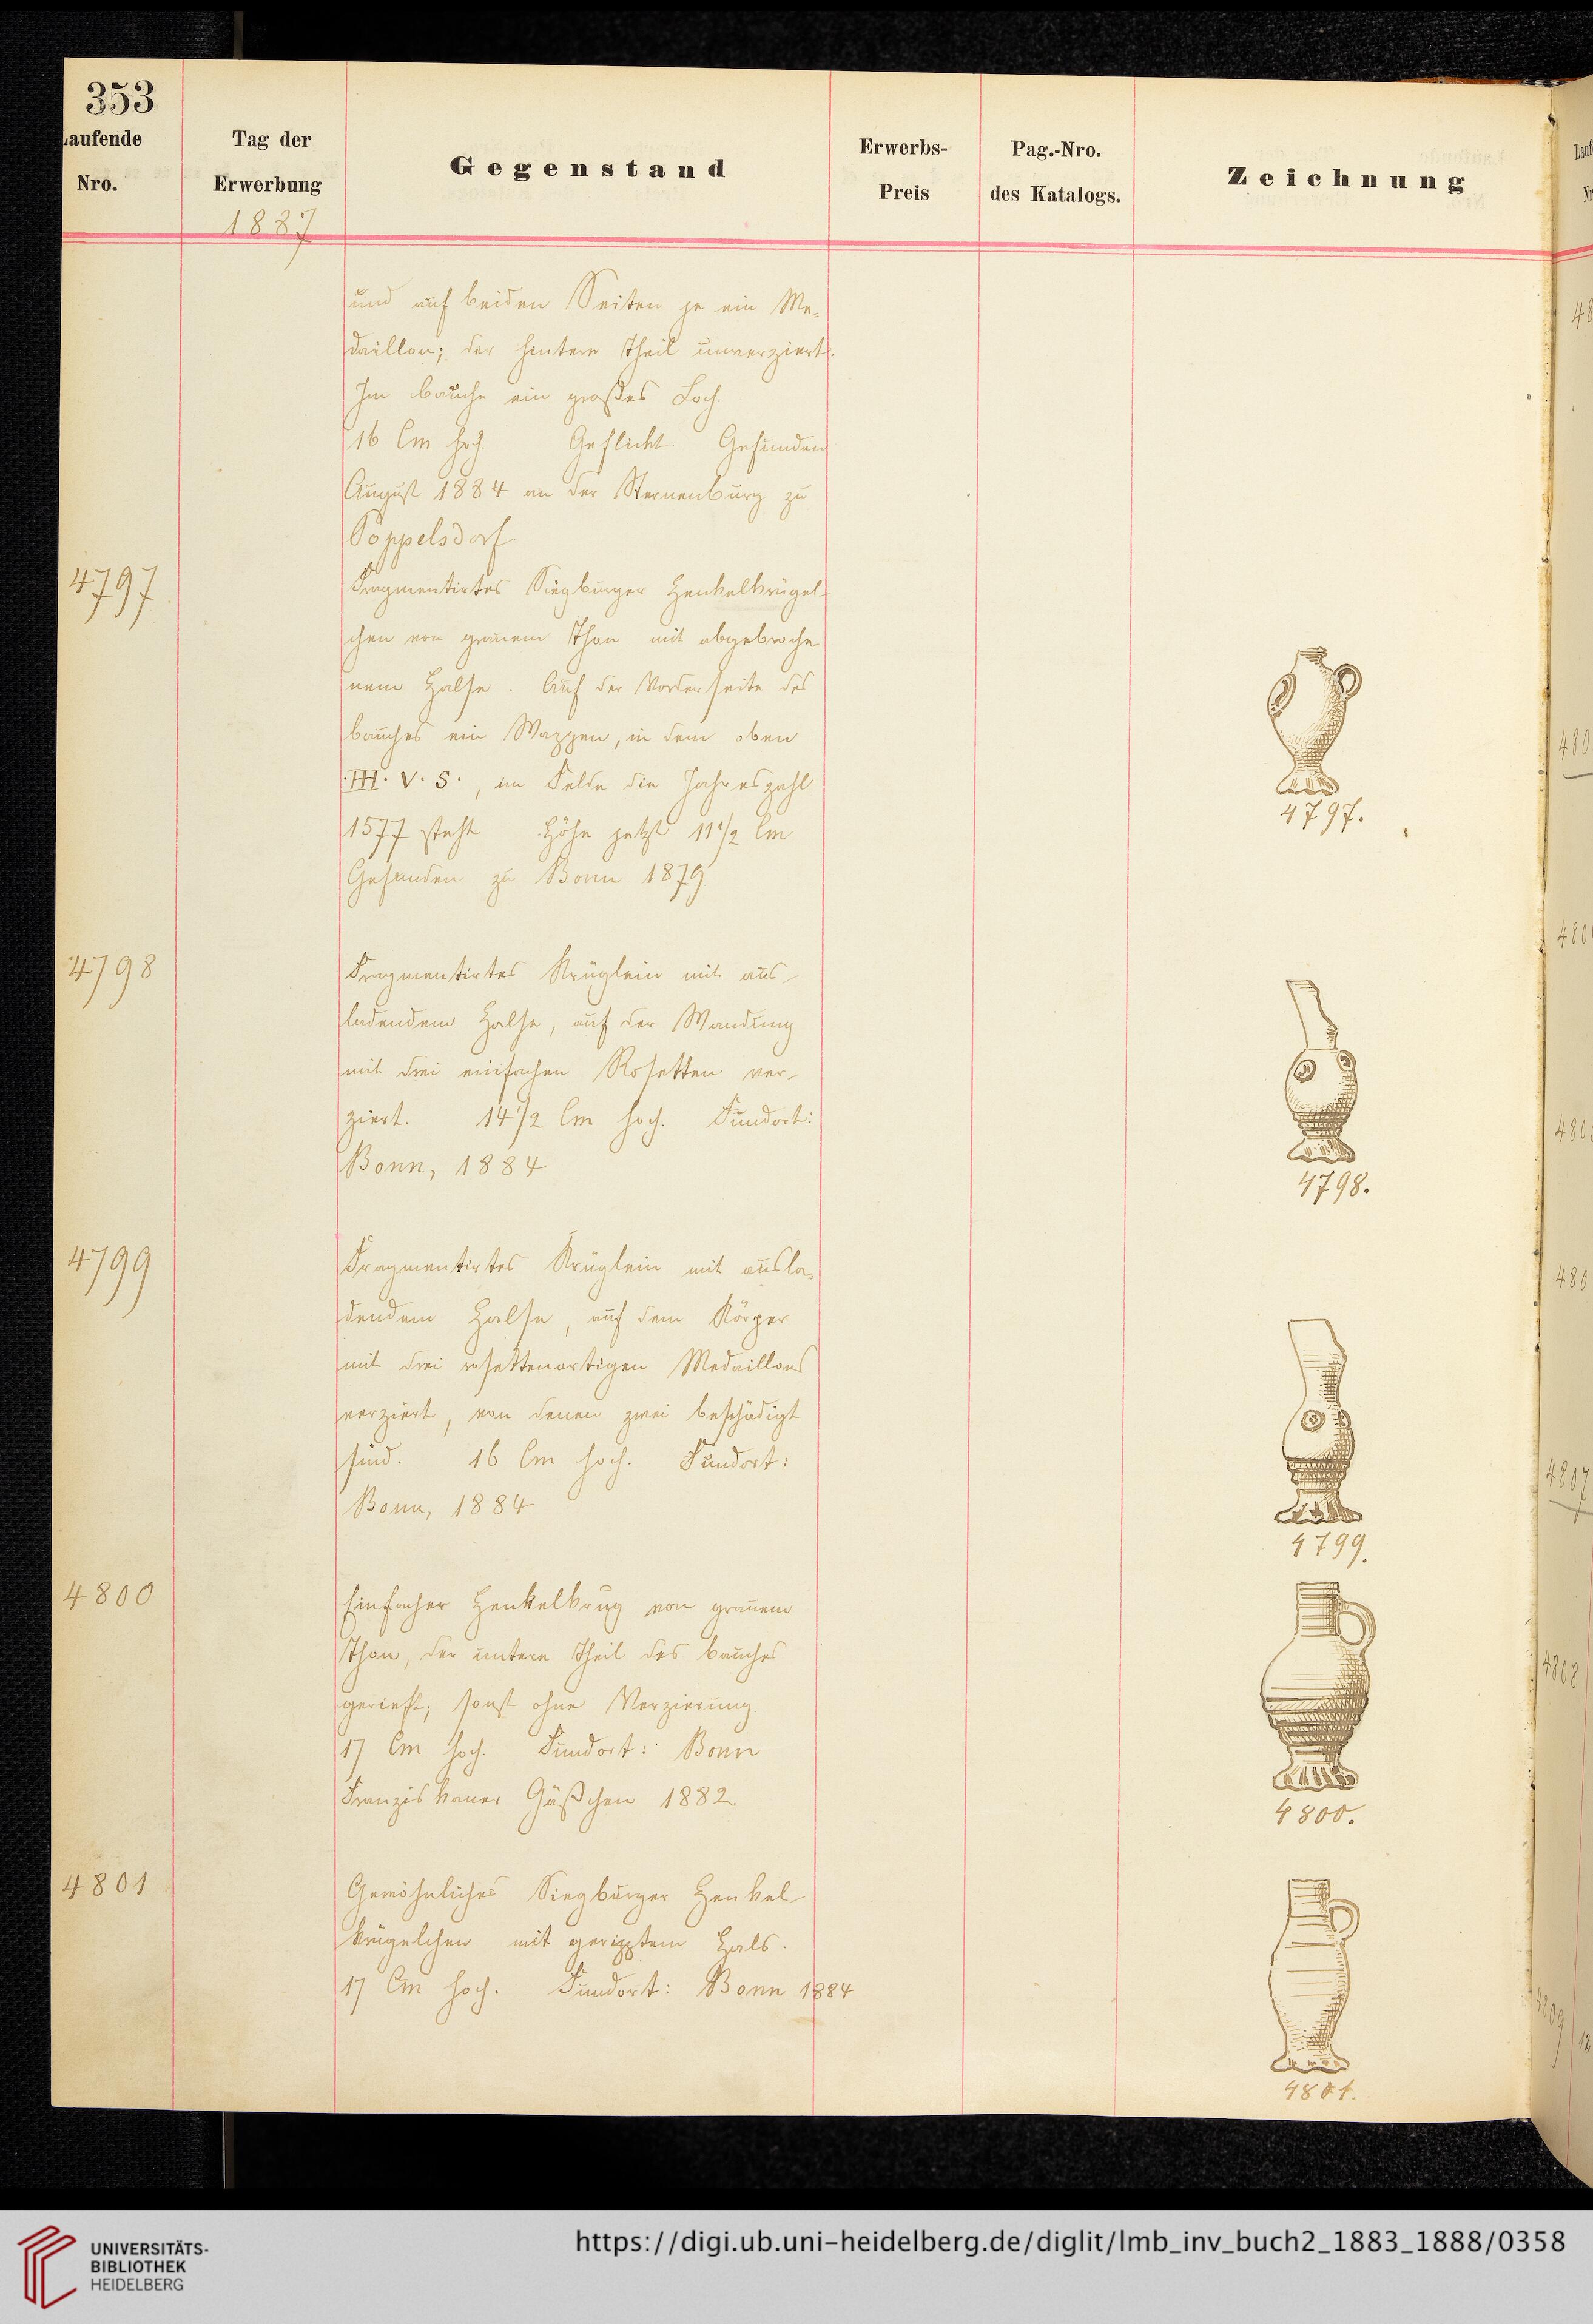 353
Laufende
Nro.
Tag der
Erwerbung
1887
Gegenstand
Erwerbs-
Preis
Pag.-Nro.
des Katalogs.
Zeichnung
und auf beiden Seiten je ein Me-
daillon; der hintere Theil unverziert.
Im Bauche ein großes Loch.
16 Cm hoch. Geflickt. Gefunden
August 1884 an der Sternenburg zu
Poppelsdorf
4797
Fragmentirtes Siegburger Henkelkrügel-
chen von grauem Thon mit abgebroche
nem Halse. Auf der Vorderseite des
Bauches ein Wappen, in dem oben
V. S., im Felde die Jahreszahl
1577 steht Höhe jetzt 11 1/2 Cm
Gefunden zu Bonn 1879.
4797.
4798
Fragmentirtes Krüglein mit aus-
ladendem Halse, auf der Wandung
mit drei einfachen Rosetten ver-
ziert. 14 1/2 Cm hoch. Fundort:
Bonn, 1884
4798.
4799
Fragmentirtes Krüglein mit ausla-
dendem Halse, auf dem Körper
mit drei rosettenartigen Medaillons
verziert, von denen zwei beschädigt
sind. 16 Cm hoch. Fundort:
Bonn, 1884
4799.
4800
Einfacher Henkelkrug von grauem
Thon, der untere Theil des Bauches
gerieft; sonst ohne Verzierung.
17 Cm hoch. Fundort: Bonn
Franziskaner Gäßchen 1882.
4800.
4801
Gewöhnliches Siegburger Henkel-
krügelchen mit geripptem Hals.
17 Cm hoch. Fundort: Bonn 1884
4801.
UNIVERSITÄTS-
BIBLIOTHEK
HEIDELBERG
https://digi.ub.uni-heidelberg.de/diglit/lmb_inv_buch2_1883_1888/0358